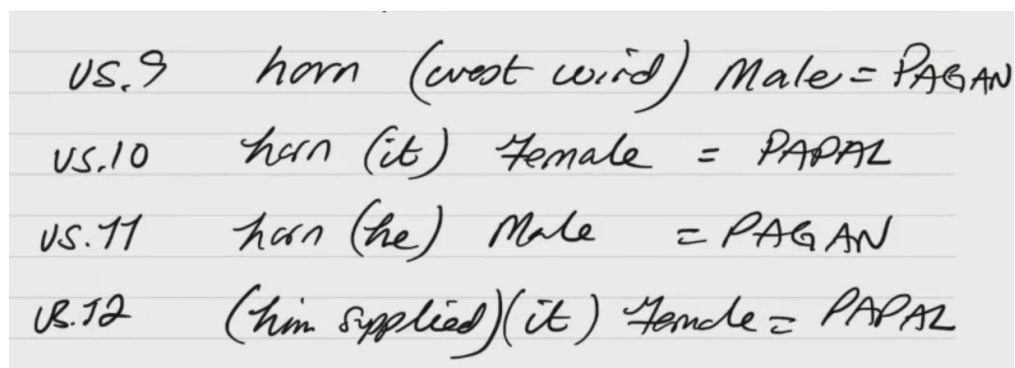 vs.9 horn (west wind) Male = PAGAN
vs.10 horn (it) Female = PAPAL
vs.11 horn (he) Male = PAGAN
vs.12 (him supplied)(it) Female = PAPAL